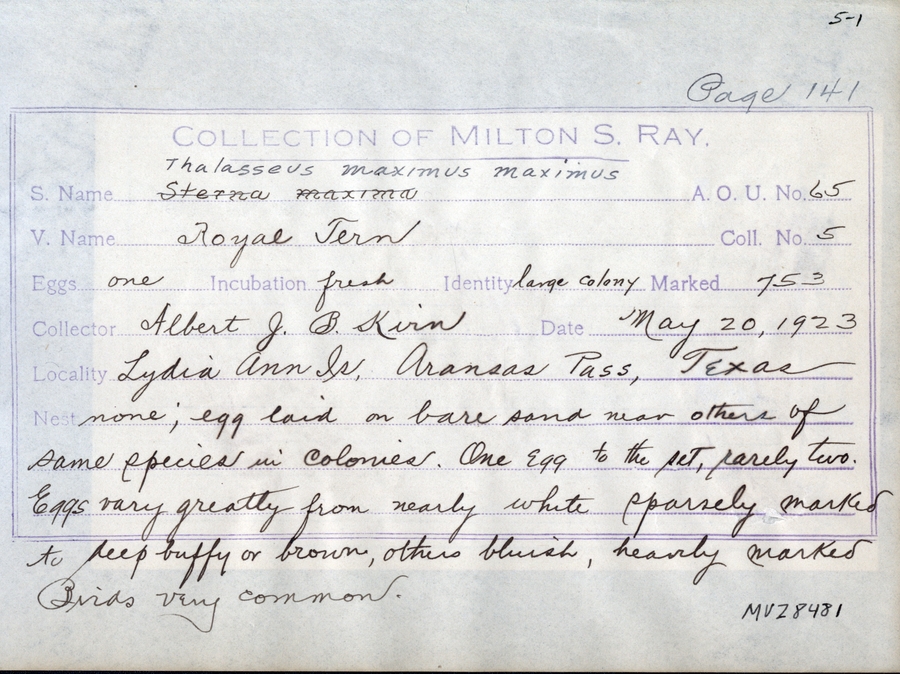 5-1
Page 141
COLLECTION OF MILTON S. RAY.
Thalasseus maximus maximus
S. Name Sterna maxima A. O. U. No. 65
V. Name Royal Tern Coll. No. 5
Eggs one Incubation fresh Identity large colony Marked 753
Collector Albert J. B. Kirn Date May 20, 1923
Locality Lydia Ann Is, Aransas Pass, Texas
Nest none; egg laid on bare sand near others of
same species in colonies. One egg to the set, rarely two.
Eggs vary greatly from nearly white sparsely marked
to deep buffy or brown, others bluish, heavily marked
Birds very common.
MVZ8481